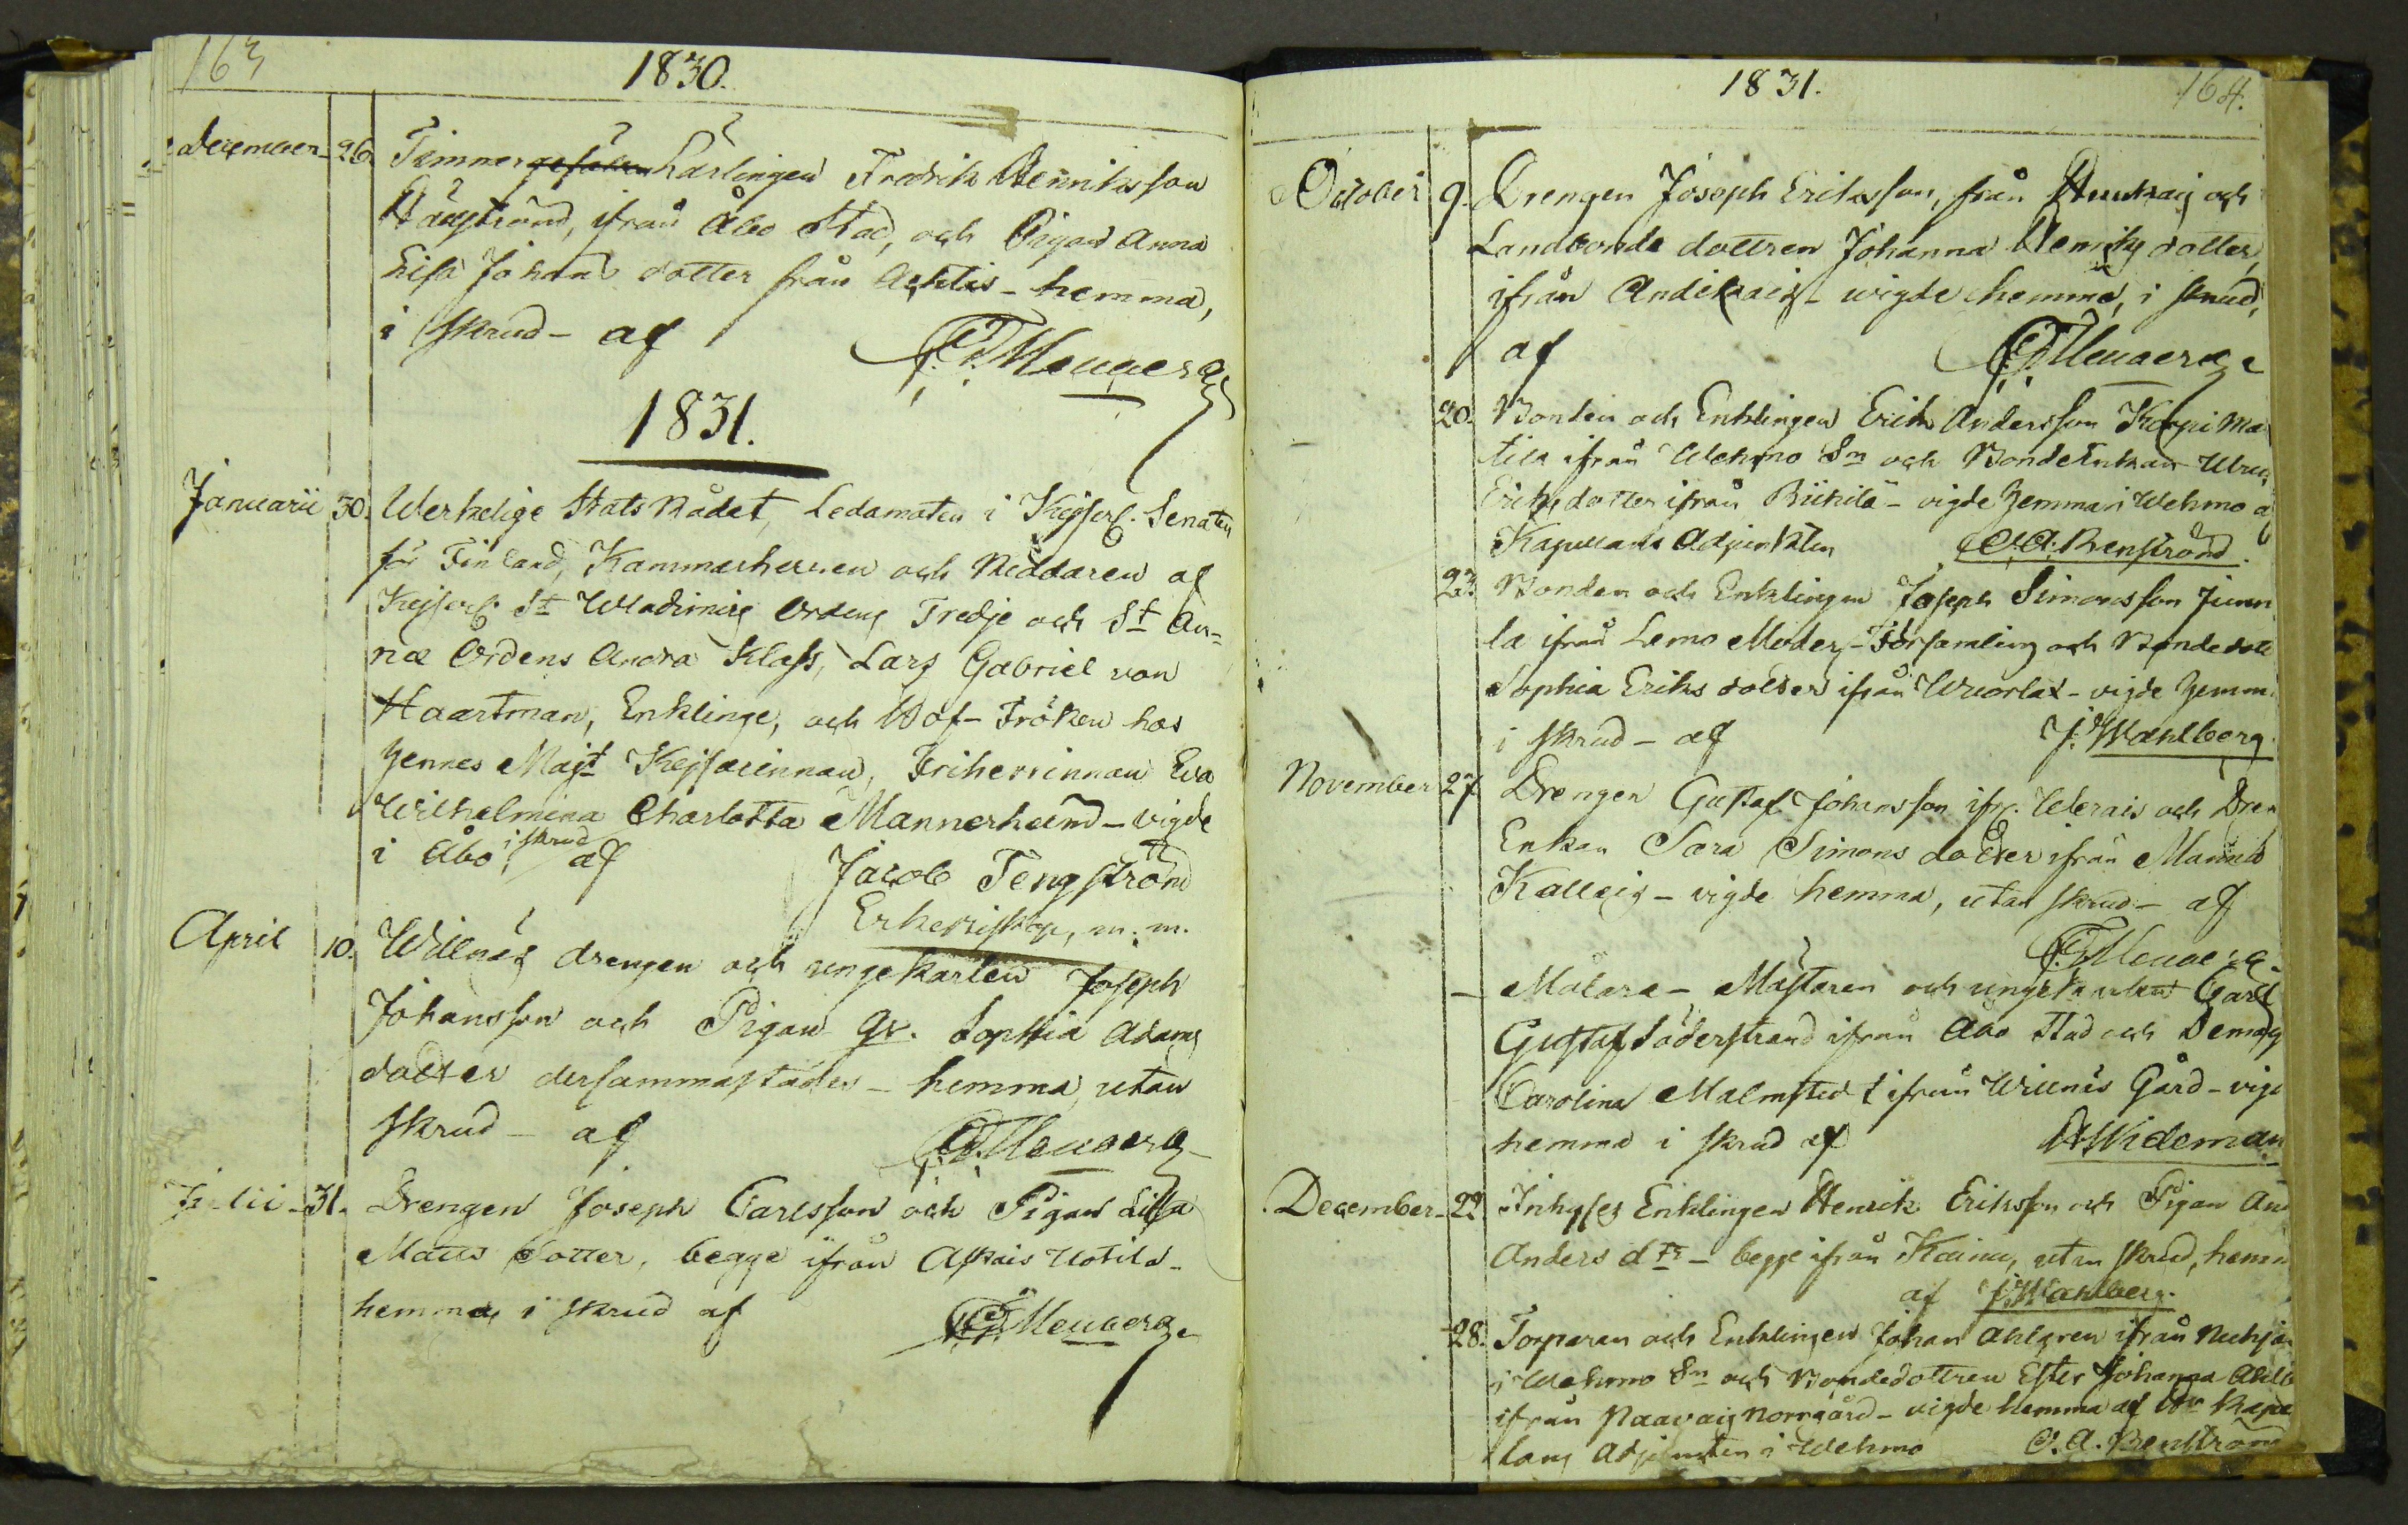 163
1830.
December 26. Timmer gesällen Lärlingen Fredrik Henriksson
Hägström, ifrån Åbo Stad, och Pigan Anna
Lisa Johans dotter från Ahtis - hemma,
i skrud - af
1831.
Januarii 30. Werkelige Stats Rådet, Ledamoten i Kejserl. Senaten
för Finland, Kammarherren och Riddaren af
Kejserl. St Wladimirs Ordens Tredje och St An-
næ Ordens Andra Klass, Lars Gabriel von
Haartman, Enklinge, och Hof-Fröken hos
Hennes Majt Kejsarinnan, Friherrinnan Eva
Wilhelmina Charlotta Mannerheim - vigde
i Åbo, i skrud af
Jacob Tengström
Erkebiskop, m. m.
April 10. Willnäs drengen och ungekarlen Joseph
Johansson och Pigan qv. Sophia Adams
dotter dersammastädes - hemma, utan
skrud - af
Julii 31. Drengen Joseph Carlsson och Pigan Lisa
Matts dotter, begge ifrån Askais Uotila -
hemma, i skrud af
1831.
164.
October 9. Drengen Joseph Eriksson, från och
Landbonde dottren Johanna Henriks dotter,
ifrån - vigde hemma, i skrud,
af
20. Bonden och Enklingen Erik Andersson Korpi Ma-
tila ifrån Wehmo Sn och BondeEnkan
Eriks dotter ifrån Riihilä - vigde hemma i Wehmo a
Kapellans Adjunkten C. A. Renström
23. Bonden och Enklingen Joseph Simonsson Junn
la ifrån Lemo Moders-Församling och Bondedott
Sophia Eriks dotter ifrån Wuorlax - vigde hemm
i skrud - af J. Wahlberg
November 27. Drengen Gustaf Johansson ifr. och Dren
Enkan Sara Simons dotter ifrån Mannis
Kallais - vigde hemma, utan skrud - af
- Målare-Mästaren och ungekarlen Carl
Gustaf Söderstrand ifrån Åbo Stad och Demois
Carolina Malmstedt ifrån Willnäs Gård - vigd
hemma i skrud af Wideman
December 22. Inhyses Enklingen Henrik Eriksson och Pigan Ann
Anders dtr - begge ifrån Kainu, utan skrud, hemm
af J. Wahlberg.
28. Torparen och Enklingen Johan Ahlgren ifrån
i Wehmo Sn och Bondedottren Ester Johanna
ifrån Paavais Norrgård - vigde hemma af Hr Kapel
lans Adjunkten i Wehmo C. A. Renström